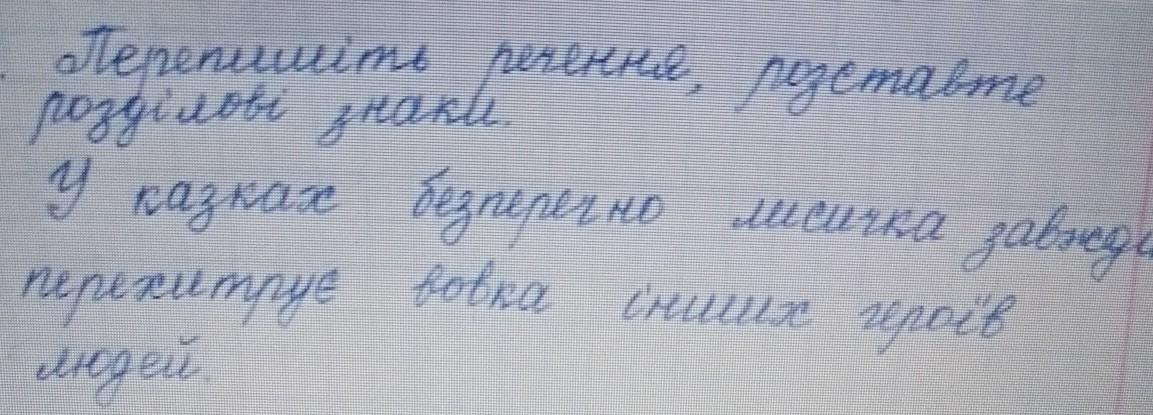 Перепишіть речення, розставте
розділові знаки.
У казках безперечно лисичка завжди
перехитрує вовка інших героїв
людей.